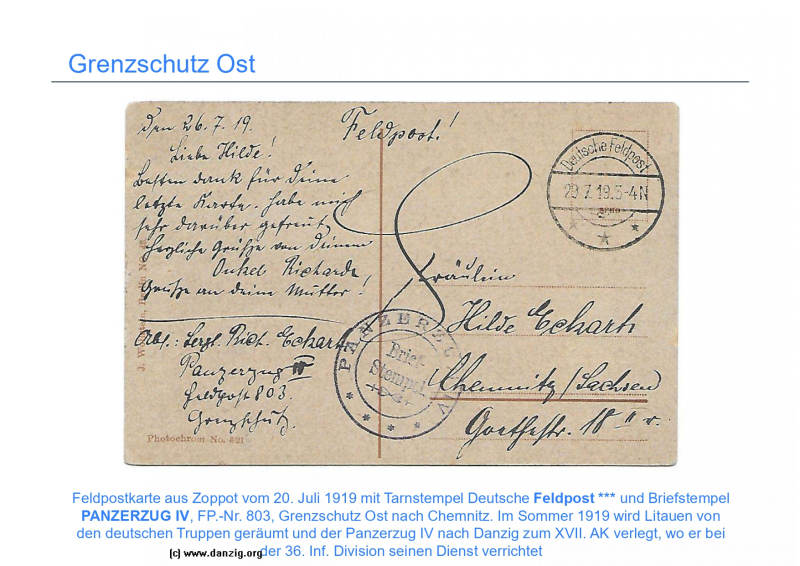 Grenzschutz Ost
Den 26.7.19.
Feldpost!
Liebe Hilde!
Besten dank für deine
letzte Karte. habe mich
sehr darüber gefreut
herzliche Grüße von deinem
Onkel Richards
Grüße an deine Mutter!
Abs.: Sergt. Rich. Eckart
Panzerzug IV
Feldpost 803.
Grenzschutz.
Photochrom No. 821
Deutsche Feldpost
20.7.19.3-4N
* * *
Fräulein
Hilde Eckart
Chemnitz/Sachsen
Goethestr. 18 II r.
PANZERZUG IV
Brief-
Stempel
* * * * *
Feldpostkarte aus Zoppot vom 20. Juli 1919 mit Tarnstempel Deutsche Feldpost *** und Briefstempel
PANZERZUG IV, FP.-Nr. 803, Grenzschutz Ost nach Chemnitz. Im Sommer 1919 wird Litauen von
den deutschen Truppen geräumt und der Panzerzug IV nach Danzig zum XVII. AK verlegt, wo er bei
der 36. Inf. Division seinen Dienst verrichtet
(c) www.danzig.org